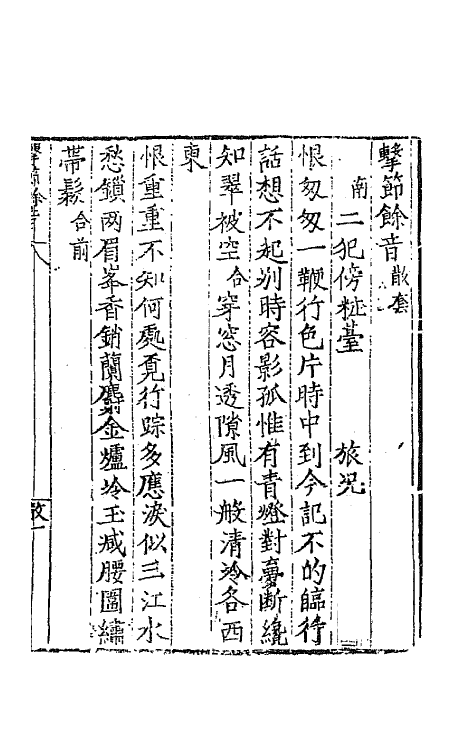 擊節餘音散套
南 二犯傍粧臺 旅況
恨匆匆一鞭行色片時中到今記不的臨行
話想不起別時容影孤惟有青燈對夢斷纔
知翠被空合穿窓月透隙風一般清冷各西
東
恨重重不知何處覓行踪多應淚似三江水
愁鎖两眉峯香銷蘭麝金爐冷玉减腰圍繡
帶鬆合前